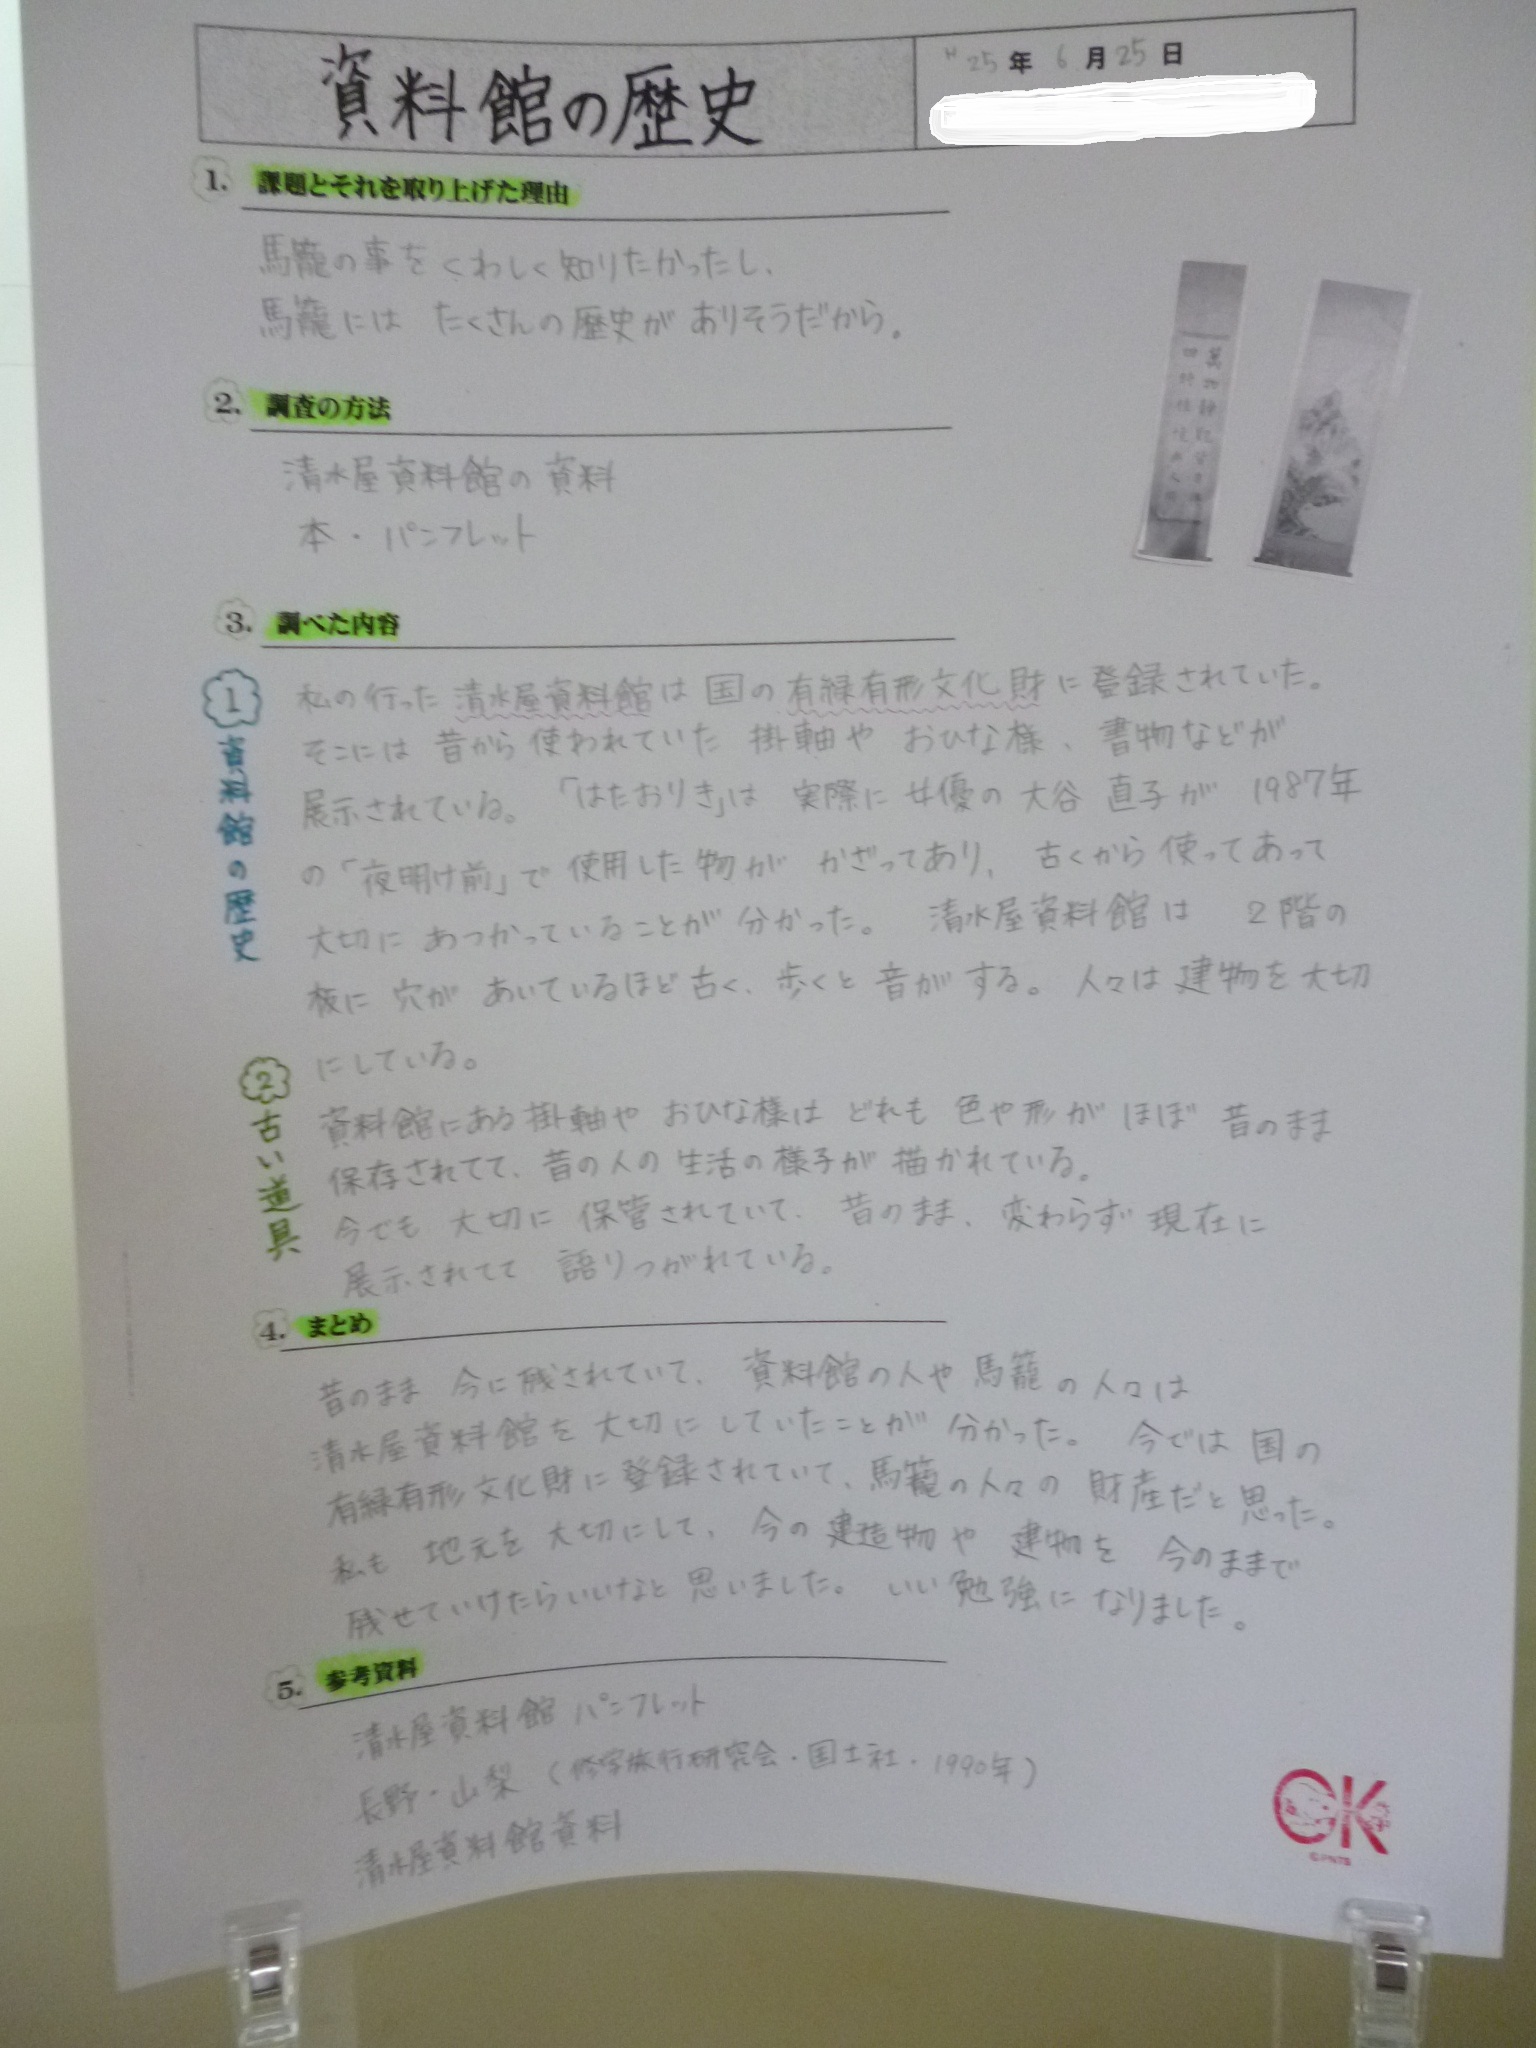 資料館の歴史
H25年 6月25日
1. 課題とそれを取り上げた理由
馬籠の事をくわしく知りたかったし、
馬籠には たくさんの歴史が ありそうだから。
2. 調査の方法
清水屋資料館の資料
本・パンフレット
3. 調べた内容
1 資料館の歴史
私の行った 清水屋資料館は 国の 有緑有形文化財に 登録されていた。
そこには 昔から 使われていた 掛軸や おひな様、書物などが
展示されている。「はたおりき」は 実際に 女優の 大谷 直子が 1987年
の「夜明け前」で 使用した 物が かざってあり、 古くから 使ってあって
大切に あつかっていることが 分かった。 清水屋資料館は 2階の
板に 穴が あいているほど古く、歩くと 音がする。人々は 建物を大切
にしている。
2 古い道具
資料館にある掛軸や おひな様は どれも 色や形が ほぼ 昔のまま
保存されてて、昔の人の 生活の様子が 描かれている。
今でも 大切に 保管されていて、昔のまま、変わらず現在に
展示されてて 語りつがれている。
4. まとめ
昔のまま 今に残されていて、 資料館の人や馬籠の人々は
清水屋資料館を 大切に していたことが 分かった。 今では 国の
有緑有形文化財に登録されていて、馬籠の人々の 財産だと思った。
私も 地元を 大切にして、 今の建造物や 建物を 今のままで
残せていけたらいいなと 思いました。 いい勉強に なりました。
5. 参考資料
清水屋資料館 パンフレット
長野・山梨 (修学旅行研究会・国土社・1990年)
清水屋資料館資料
OK